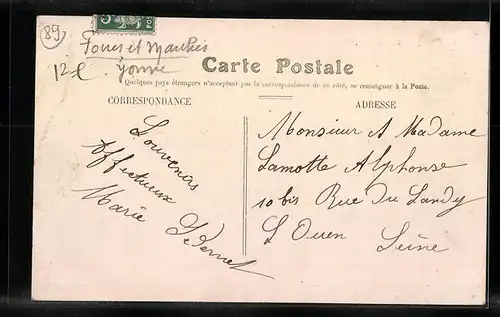 89
5
Foires et Marchés
12 € Yonne
Carte Postale
Quelques pays étrangers n'acceptant pas la correspondance de ce côté, se renseigner à la Poste.
CORRESPONDANCE
ADRESSE
Souvenirs
affectueux
Marie
Monsieur A Madame
Lamotte Alphonse
10 bis Rue du Landy
St Ouen Seine